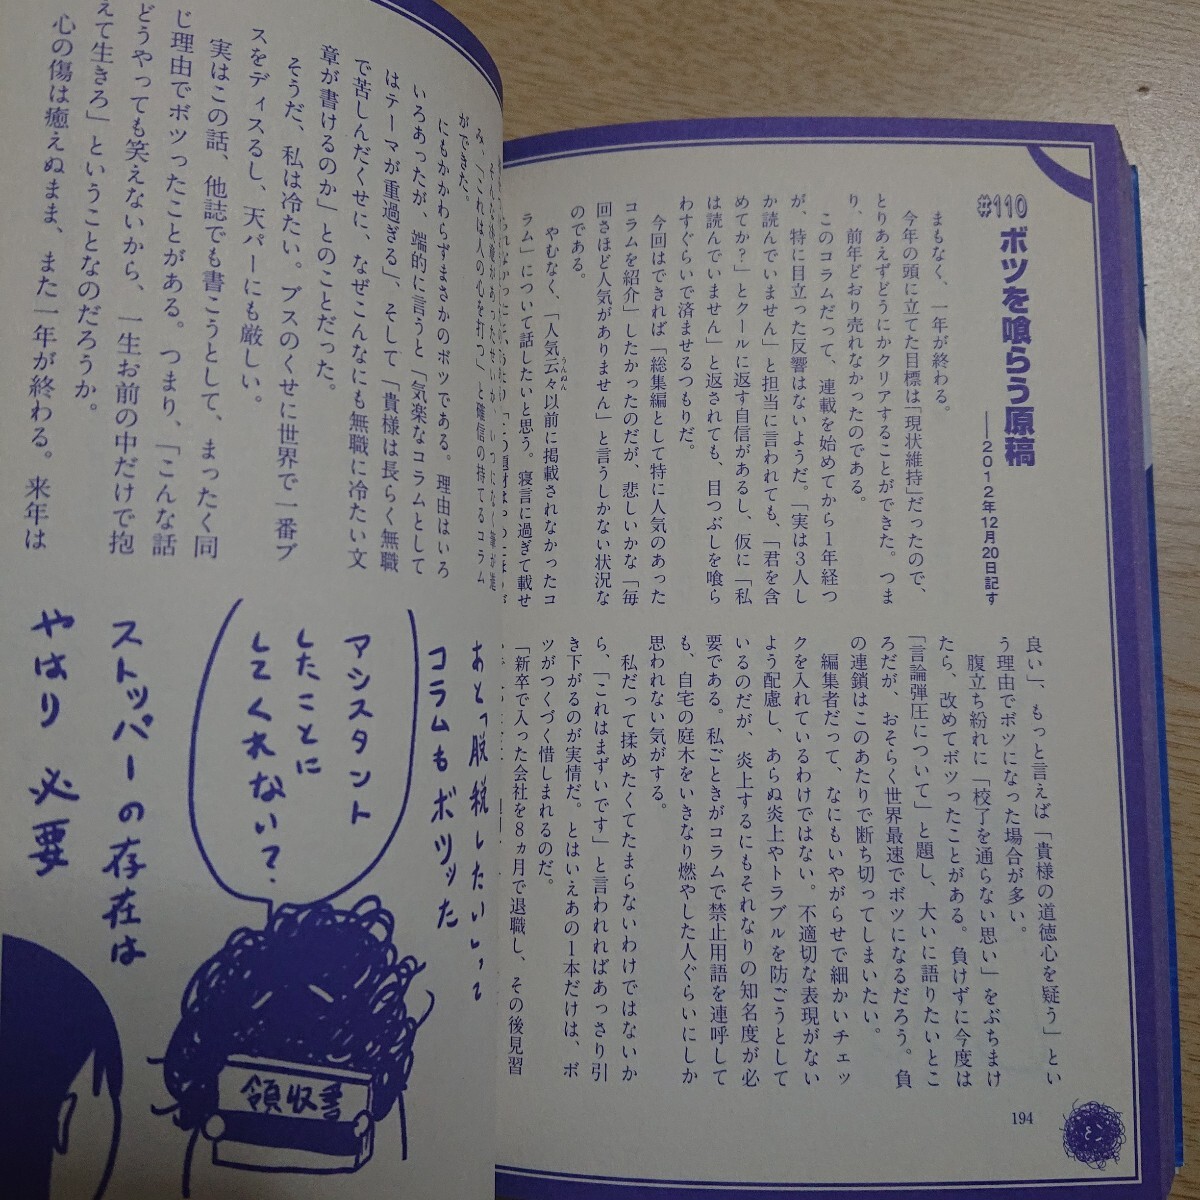 #110 ボツを喰らう原稿
――2012年12月20日記す
まもなく、一年が終わる。
今年の頭に立てた目標は「現状維持」だったので、
とりあえずどうにかクリアすることができた。つま
り、前年どおり売れなかったのである。
このコラムだって、連載を始めてから1年経つ
が、特に目立った反響はないようだ。「実は3人し
か読んでいません」と担当に言われても、「君を含
めてか?」とクールに返す自信があるし、仮に「私
は読んでいません」と返されても、目つぶしを喰ら
わすぐらいで済ませるつもりだ。
今回はできれば「総集編として特に人気のあった
コラムを紹介」したかったのだが、悲しいかな「毎
回さほど人気がありません」と言うしかない状況な
のである。
やむなく、「人気云々以前に掲載されなかったコ
うんぬん
ラム」について話したいと思う。寝言に過ぎて載せ
良い」、もっと言えば「貴様の道徳心を疑う」とい
う理由でボツになった場合が多い。
腹立ち紛れに「校了を通らない思い」をぶちまけ
たら、改めてボツったことがある。負けずに今度は
「言論弾圧について」と題し、大いに語りたいとこ
ろだが、おそらく世界最速でボツになるだろう。負
の連鎖はこのあたりで断ち切ってしまいたい。
編集者だって、なにもいやがらせで細かいチェッ
クを入れているわけではない。不適切な表現がない
よう配慮し、あらぬ炎上やトラブルを防ごうとして
いるのだが、炎上するにもそれなりの知名度が必
要である。私ごときがコラムで禁止用語を連呼して
も、自宅の庭木をいきなり燃やした人ぐらいにしか
思われない気がする。
私だって揉めたくてたまらないわけではないか
ら、「これはまずいです」と言われればあっさり引
き下がるのが実情だ。とはいえあの1本だけは、ボ
ツがつくづく惜しまれるのだ。
「新卒で入った会社を8ヵ月で退職し、その後見習
194
み、「これは人の心を打つ」と確信の持てるコラム
ができた。
にもかかわらずまさかのボツである。理由はいろ
いろあったが、端的に言うと「気楽なコラムとして
はテーマが重過ぎる」、そして「貴様は長らく無職
で苦しんだくせに、なぜこんなにも無職に冷たい文
章が書けるのか」とのことだった。
そうだ、私は冷たい。ブスのくせに世界で一番ブ
スをディスるし、天パーにも厳しい。
実はこの話、他誌でも書こうとして、まったく同
じ理由でボツったことがある。つまり、「こんな話
どうやっても笑えないから、一生お前の中だけで抱
えて生きろ」ということなのだろうか。
心の傷は癒えぬまま、また一年が終わる。来年は
あと「脱税したい」って
コラムもボツッた
アシスタント
したことに
してくれない?
ストッパーの存在は
やはり必要
領収書